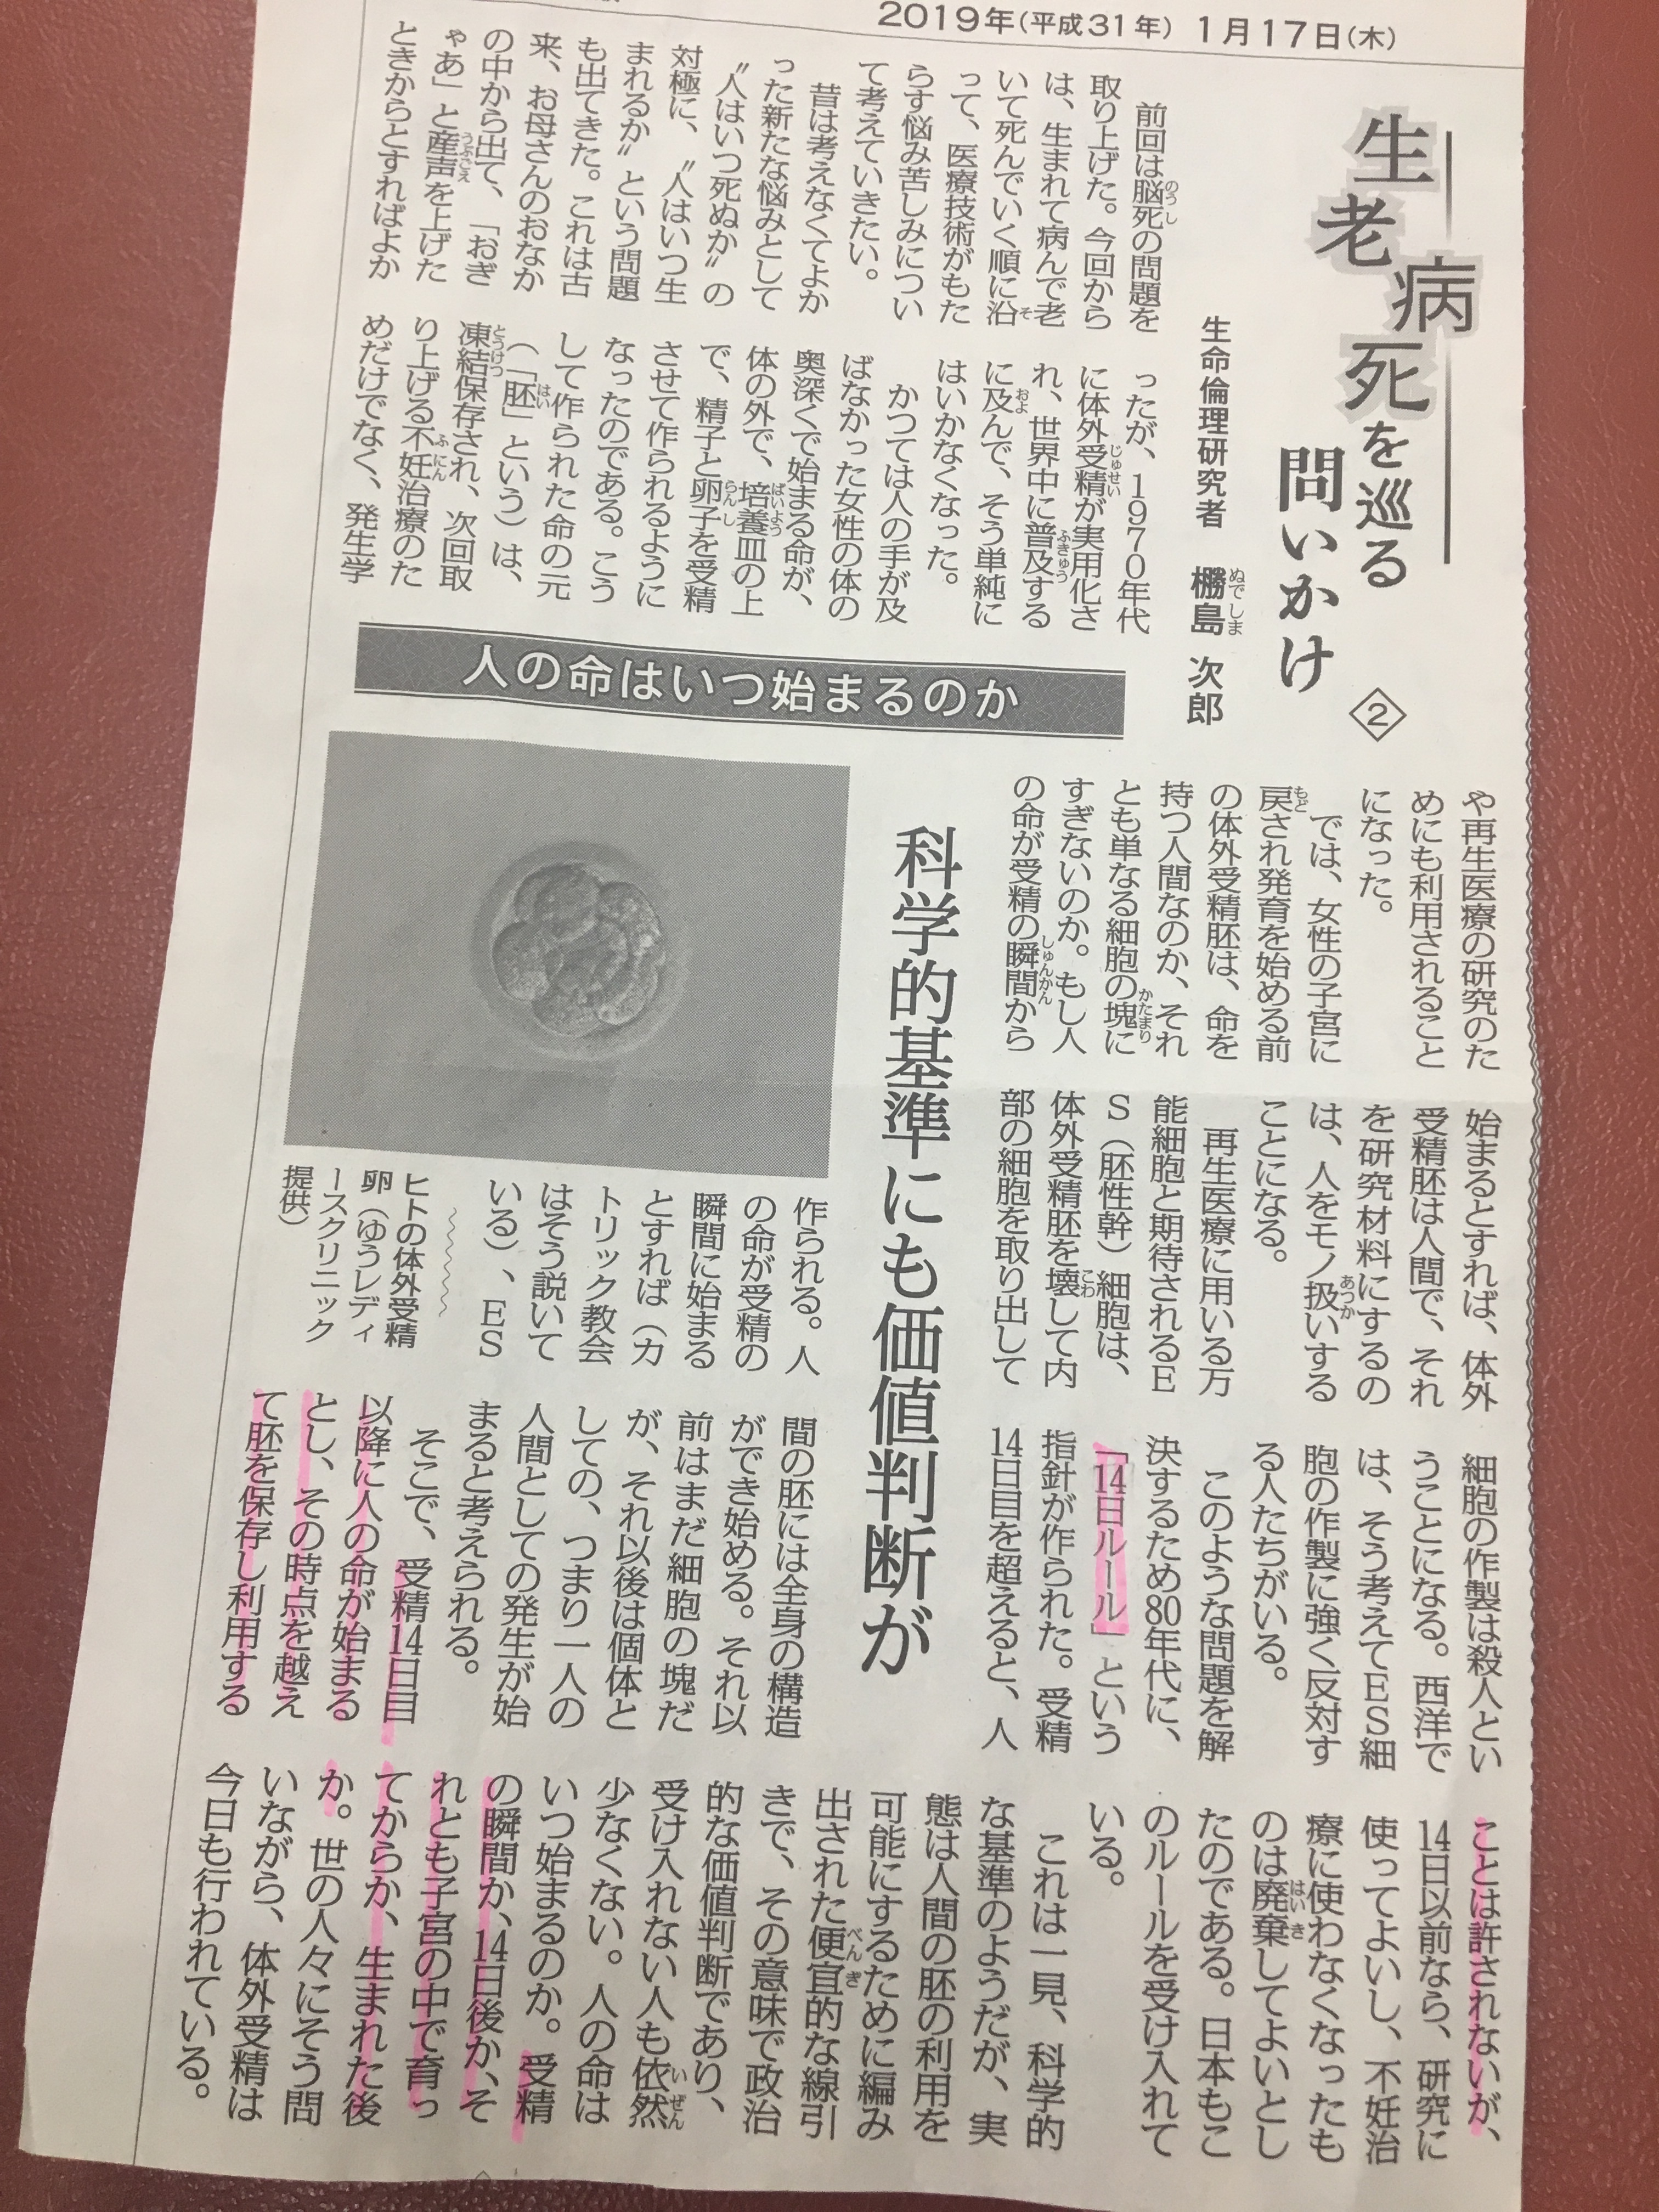 2019年(平成31年) 1月17日(木)
生老病死を巡る
問いかけ
②
生命倫理研究者 橳島 次郎
ぬでしま
前回は脳死の問題を
取り上げた。今回から
は、生まれて病んで老
いて死んでいく順に沿
って、医療技術がもた
らす悩み苦しみについ
て考えていきたい。
昔は考えなくてよか
った新たな悩みとして
〝人はいつ死ぬか〟の
対極に、〝人はいつ生
まれるか〟という問題
も出てきた。これは古
来、お母さんのおなか
の中から出て、「おぎ
ゃあ」と産声を上げた
ときからとすればよか
ったが、1970年代
に体外受精が実用化さ
れ、世界中に普及する
に及んで、そう単純に
はいかなくなった。
かつては人の手が及
ばなかった女性の体の
奥深くで始まる命が、
体の外で、培養皿の上
で、精子と卵子を受精
させて作られるように
なったのである。こう
して作られた命の元
(「胚」という)は、
凍結保存され、次回取
り上げる不妊治療のた
めだけでなく、発生学
人の命はいつ始まるのか
や再生医療の研究のた
めにも利用されること
になった。
では、女性の子宮に
戻され発育を始める前
の体外受精胚は、命を
持つ人間なのか、それ
とも単なる細胞の塊に
すぎないのか。もし人
の命が受精の瞬間から
始まるとすれば、体外
受精胚は人間で、それ
を研究材料にするの
は、人をモノ扱いする
ことになる。
再生医療に用いる万
能細胞と期待されるE
S(胚性幹)細胞は、
体外受精胚を壊して内
部の細胞を取り出して
科学的基準にも価値判断が
作られる。人
の命が受精の
瞬間に始まる
とすれば(カ
トリック教会
はそう説いて
いる)、ES
ヒトの体外受精
卵(ゆうレディ
ースクリニック
提供)
細胞の作製は殺人とい
うことになる。西洋で
は、そう考えてES細
胞の作製に強く反対す
る人たちがいる。
このような問題を解
決するため80年代に、
「14日ルール」という
指針が作られた。受精
14日目を超えると、人
間の胚には全身の構造
ができ始める。それ以
前はまだ細胞の塊だ
が、それ以後は個体と
しての、つまり一人の
人間としての発生が始
まると考えられる。
そこで、受精14日目
以降に人の命が始まる
とし、その時点を越え
て胚を保存し利用する
ことは許されないが、
14日以前なら、研究に
使ってよいし、不妊治
療に使わなくなったも
のは廃棄してよいとし
たのである。日本もこ
のルールを受け入れて
いる。
これは一見、科学的
な基準のようだが、実
態は人間の胚の利用を
可能にするために編み
出された便宜的な線引
きで、その意味で政治
的な価値判断であり、
受け入れない人も依然
少なくない。人の命は
いつ始まるのか。受精
の瞬間か、14日後か、そ
れとも子宮の中で育っ
てからか、生まれた後
か。世の人々にそう問
いながら、体外受精は
今日も行われている。